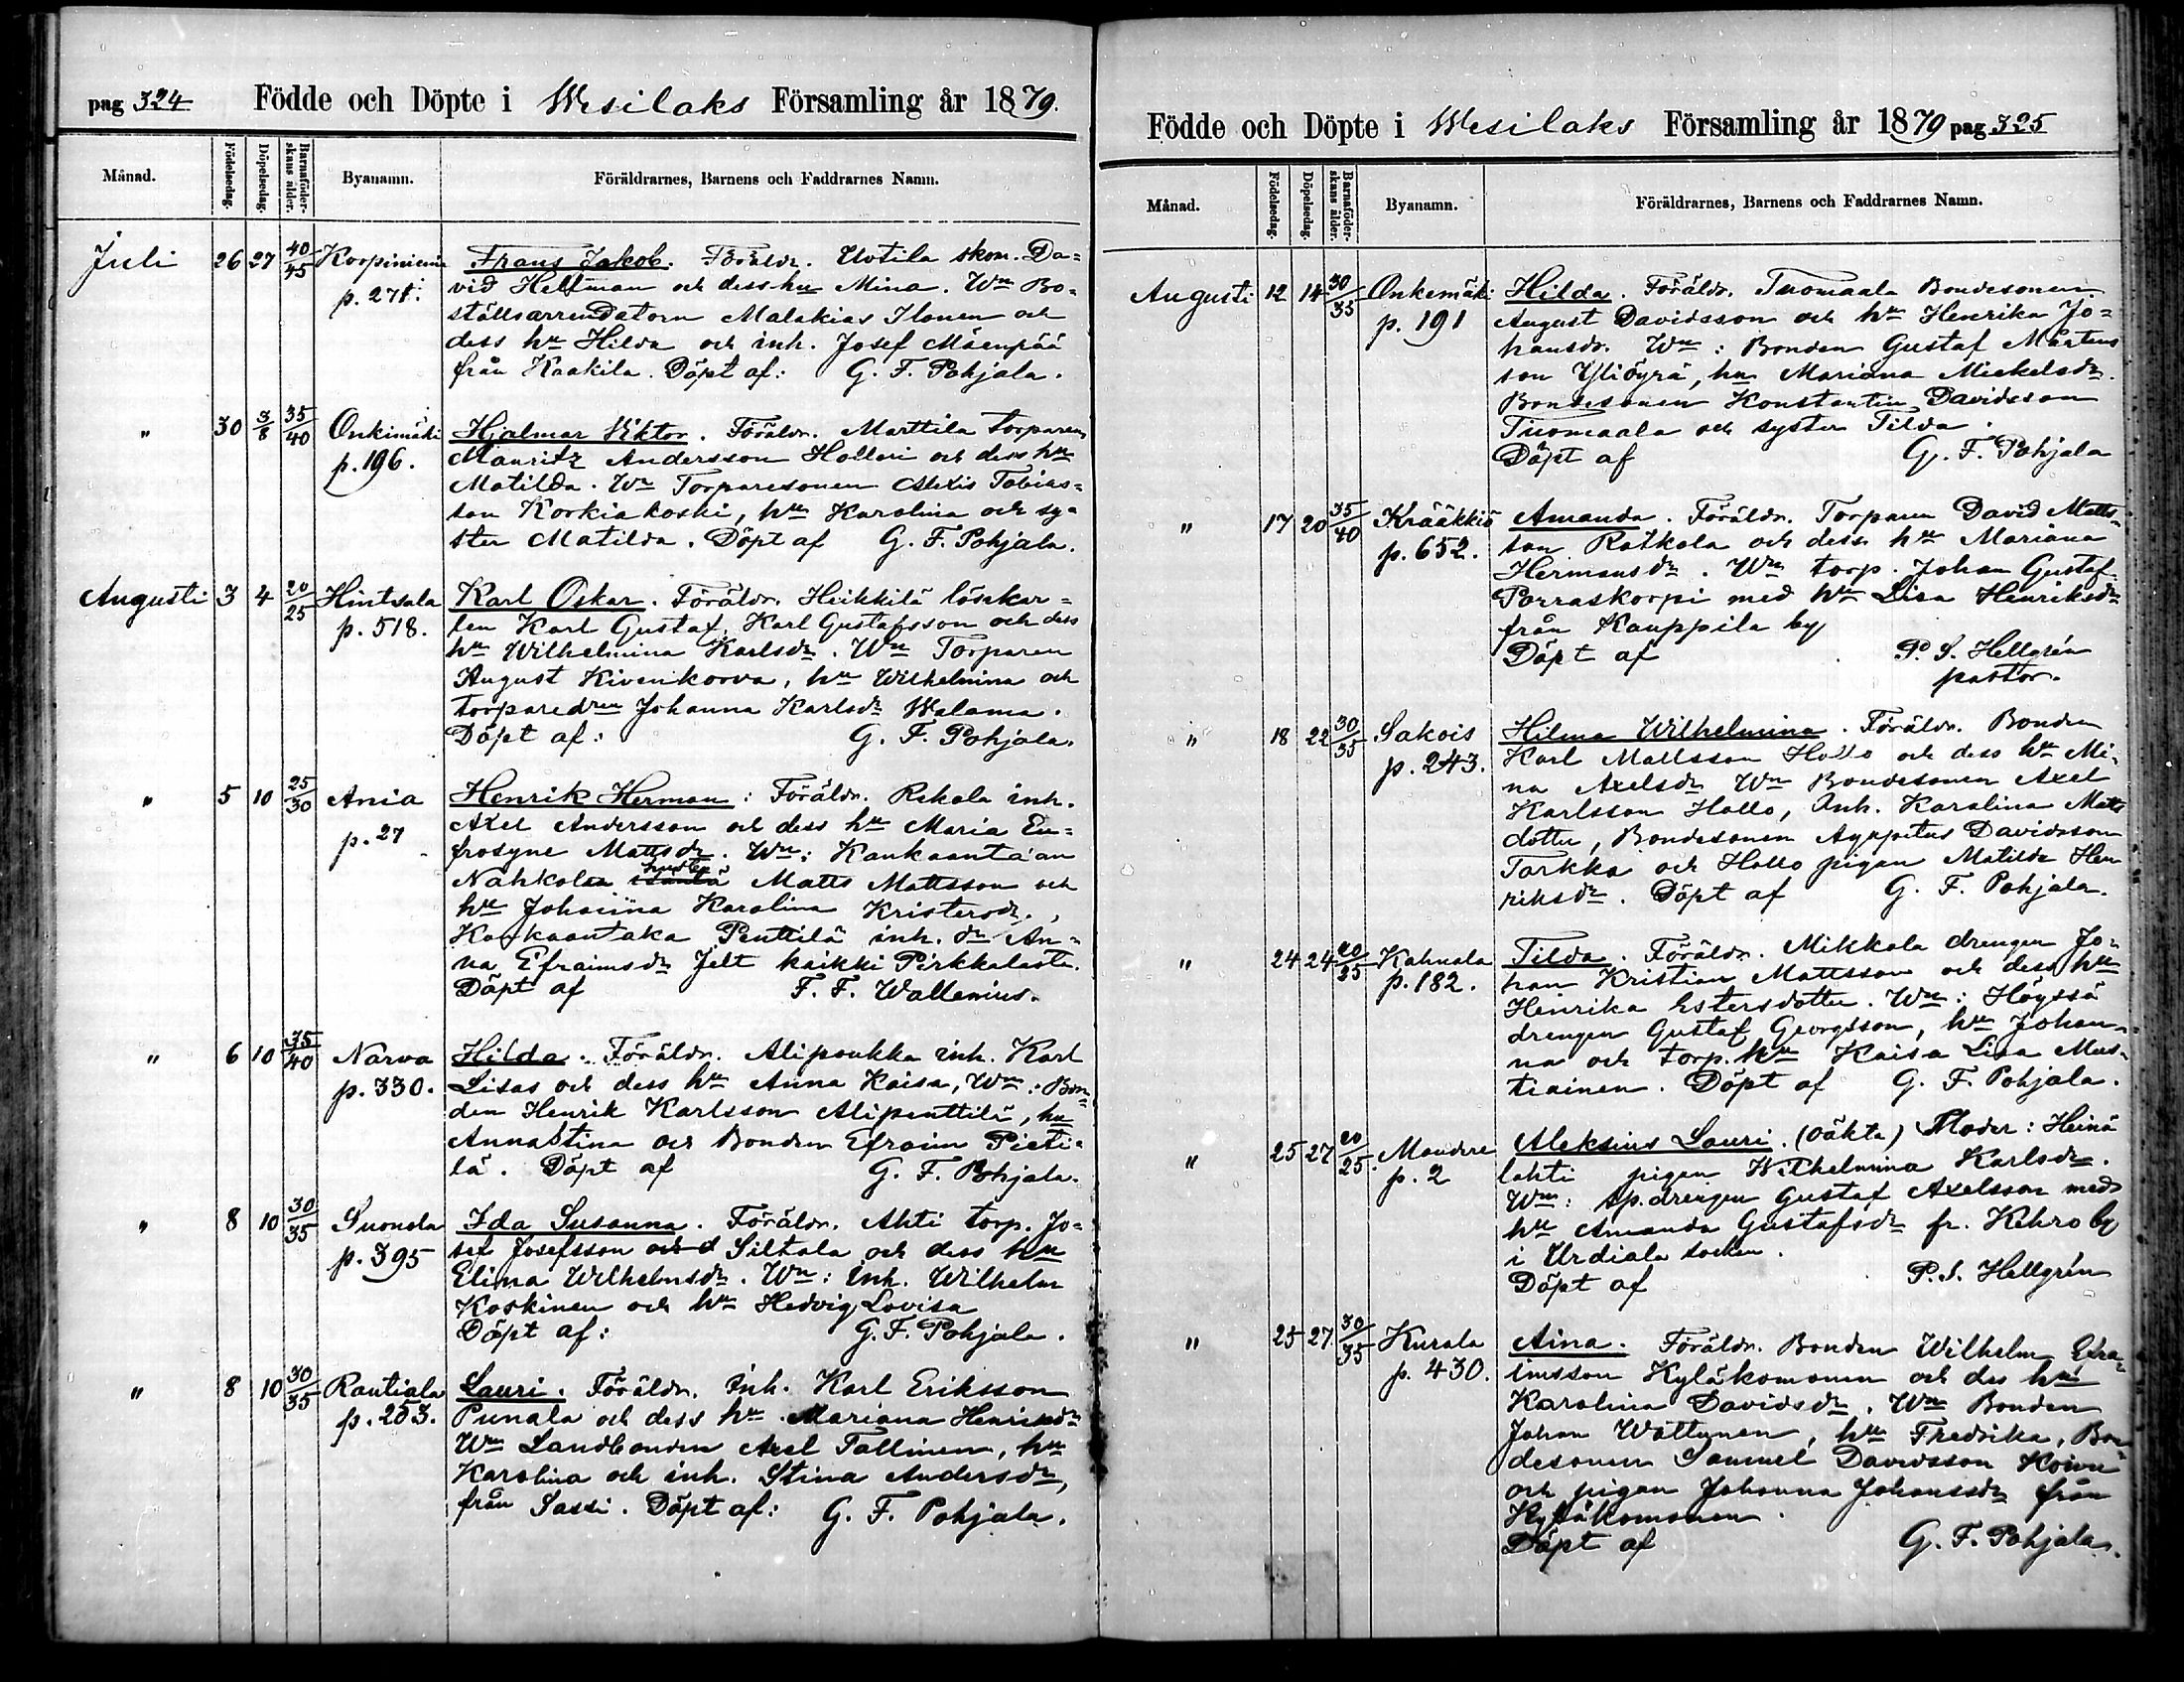 pag 324 Födde och Döpte i Wesilaks Församling år 1879.
Månad. Födelsedag. Döpelsedag. Barnaföderskans ålder. Byanamn. Föräldrarnes, Barnens och Faddrarnes Namn.
Juli 26 27 40/45 Korpiniemi Frans Jakob. Föräldr. Uotila skom. Da=
p. 271. vid Hellman och dess hu Mina. Wn Bo=
ställsarrendatorn Malakias Ilonen och
dess hu Hilda och inh. Josef Mäenpää
från Kaakila. Döpt af: G. F. Pohjala.
" 30 3/8 35/40 Onkimäki Hjalmar Viktor. Föräldr. Marttila torparen
p. 196. Mauritz Andersson Holleri och dess hu
Matilda. Wn Torparesonen Alexis Tobias=
son Korkiakoski, hu Karolina och sy=
ster Matilda. Döpt af G. F. Pohjala.
Augusti 3 4 20/25 Hintsala Karl Oskar. Föräldr. Heikkilä löskar=
p. 518. len Karl Gustaf, Karl Gustafsson och dess
hu Wilhelmina Karlsdr. Wn Torparen
August Kivenkorva, hu Wilhelmina och
torparedren Johanna Karlsdr Walama.
Döpt af: G. F. Pohjala.
" 5 10 25/30 Ania Henrik Herman: Föräldr. Rekola inh.
p. 27 Axel Andersson och dess hu Maria Eu=
frosyne Mattsdr. Wn: Kankaantaan
Nahkola Matts Mattsson och
hu Johanna Karolina Kristersdr.,
Kankaantaka Penttilä inh. dr An=
na Efraimsdr Jelt kaikki Pirkkalasta.
Döpt af F. F. Wallenius.
" 6 10 35/40 Narva Hilda. Föräldr. Alipoukka inh. Karl
p. 330. Lisas och dess hu Anna Kaisa, Wn: Bon=
den Henrik Karlsson Alipenttilä, hu
Annastina och Bonden Efraim Pieti=
lä. Döpt af G. F. Pohjala.
" 8 10 30/35 Suonola Ida Susanna. Föräldr. Ahti torp. Jo=
p. 395 sef Josefsson Siltala och dess hu
Elina Wilhelmsdr. Wn: inh. Wilhelm
Koskinen och hu Hedvig Lovisa
Döpt af: G. F. Pohjala.
" 8 10 30/35 Rautiala Lauri. Föräldr. Inh. Karl Eriksson
p. 253. Punala och dess hu Mariana Henriksdr
Wn Landbonden Axel Tallinen, hu
Karolina och inh. Stina Andersdr,
från Sassi. Döpt af: G. F. Pohjala.
Födde och Döpte i Wesilaks Församling år 1879 pag 325
Månad. Födelsedag. Döpelsedag. Barnaföderskans ålder. Byanamn. Föräldrarnes, Barnens och Faddrarnes Namn.
Augusti 12 14 30/35 Onkemäki Hilda. Föräldr. Tuomaala Bondesonen
p. 191 August Davidsson och hu Henrika Jo=
hansdr. Wn: Bonden Gustaf Mårtens
son Yliöyrä, hu Mariana Mickelsdr.
Bondesonen Konstantin Davidsson
Tuomaala och syster Tilda.
Döpt af G. F. Pohjala
" 17 20 35/40 Krääkkiö Amanda. Föräldr. Torparen David Matts=
p. 652. son Ratkola och dess hu Mariana
Hermansdr. Wn torp. Johan Gustaf
Porraskorpi med hu Lisa Henriksdr
från Kauppila by
Döpt af P. S. Hellgrén
pastor.
" 18 22 30/35 Sakois Hilma Wilhelmina. Föräldr. Bonden
p. 243. Karl Mattsson Hollo och dess hu Mi=
na Axelsdr Wn Bondesonen Axel
Karlsson Hollo, Inh. Karolina Matts
dotter, Bondesonen Agapetus Davidsson
Torkko och Hollo pigan Matilda Hen
riksdr. Döpt af G. F. Pohjala.
" 24 24 20/25 Kahnala Tilda. Föräldr. Mikkola drengen Jo=
p. 182. han Kristian Mattsson och dess hu
Henrika Estersdotter. Wn: Höyssä
drengen Gustaf Georgsson, hu Johan=
na och torp. hu Kaisa Lisa Mus=
tiainen. Döpt af G. F. Pohjala.
" 25 27 20/25 Mandere Aleksius Lauri. (Oäkta) Moder: Heinä
p. 2 lahti pigan Wilhelmina Karlsdr.
Wn: sp. drengen Gustaf Axelsson med
hu Amanda Gustafsdr fr. Kehro by
i Urdiala socken.
Döpt af P. S. Hellgrén
" 25 27 30/35 Kurala Aina. Föräldr. Bonden Wilhelm Efra=
p. 430. imsson Kyläkomonen och des hu
Karolina Davidsdr. Wn Bonden
Johan Wättynen, hu Fredrika, Bon=
desonen Samuel Davidsson Koivu
och pigan Johanna Johansdr från
Kyläkomonen.
Döpt af G. F. Pohjala.